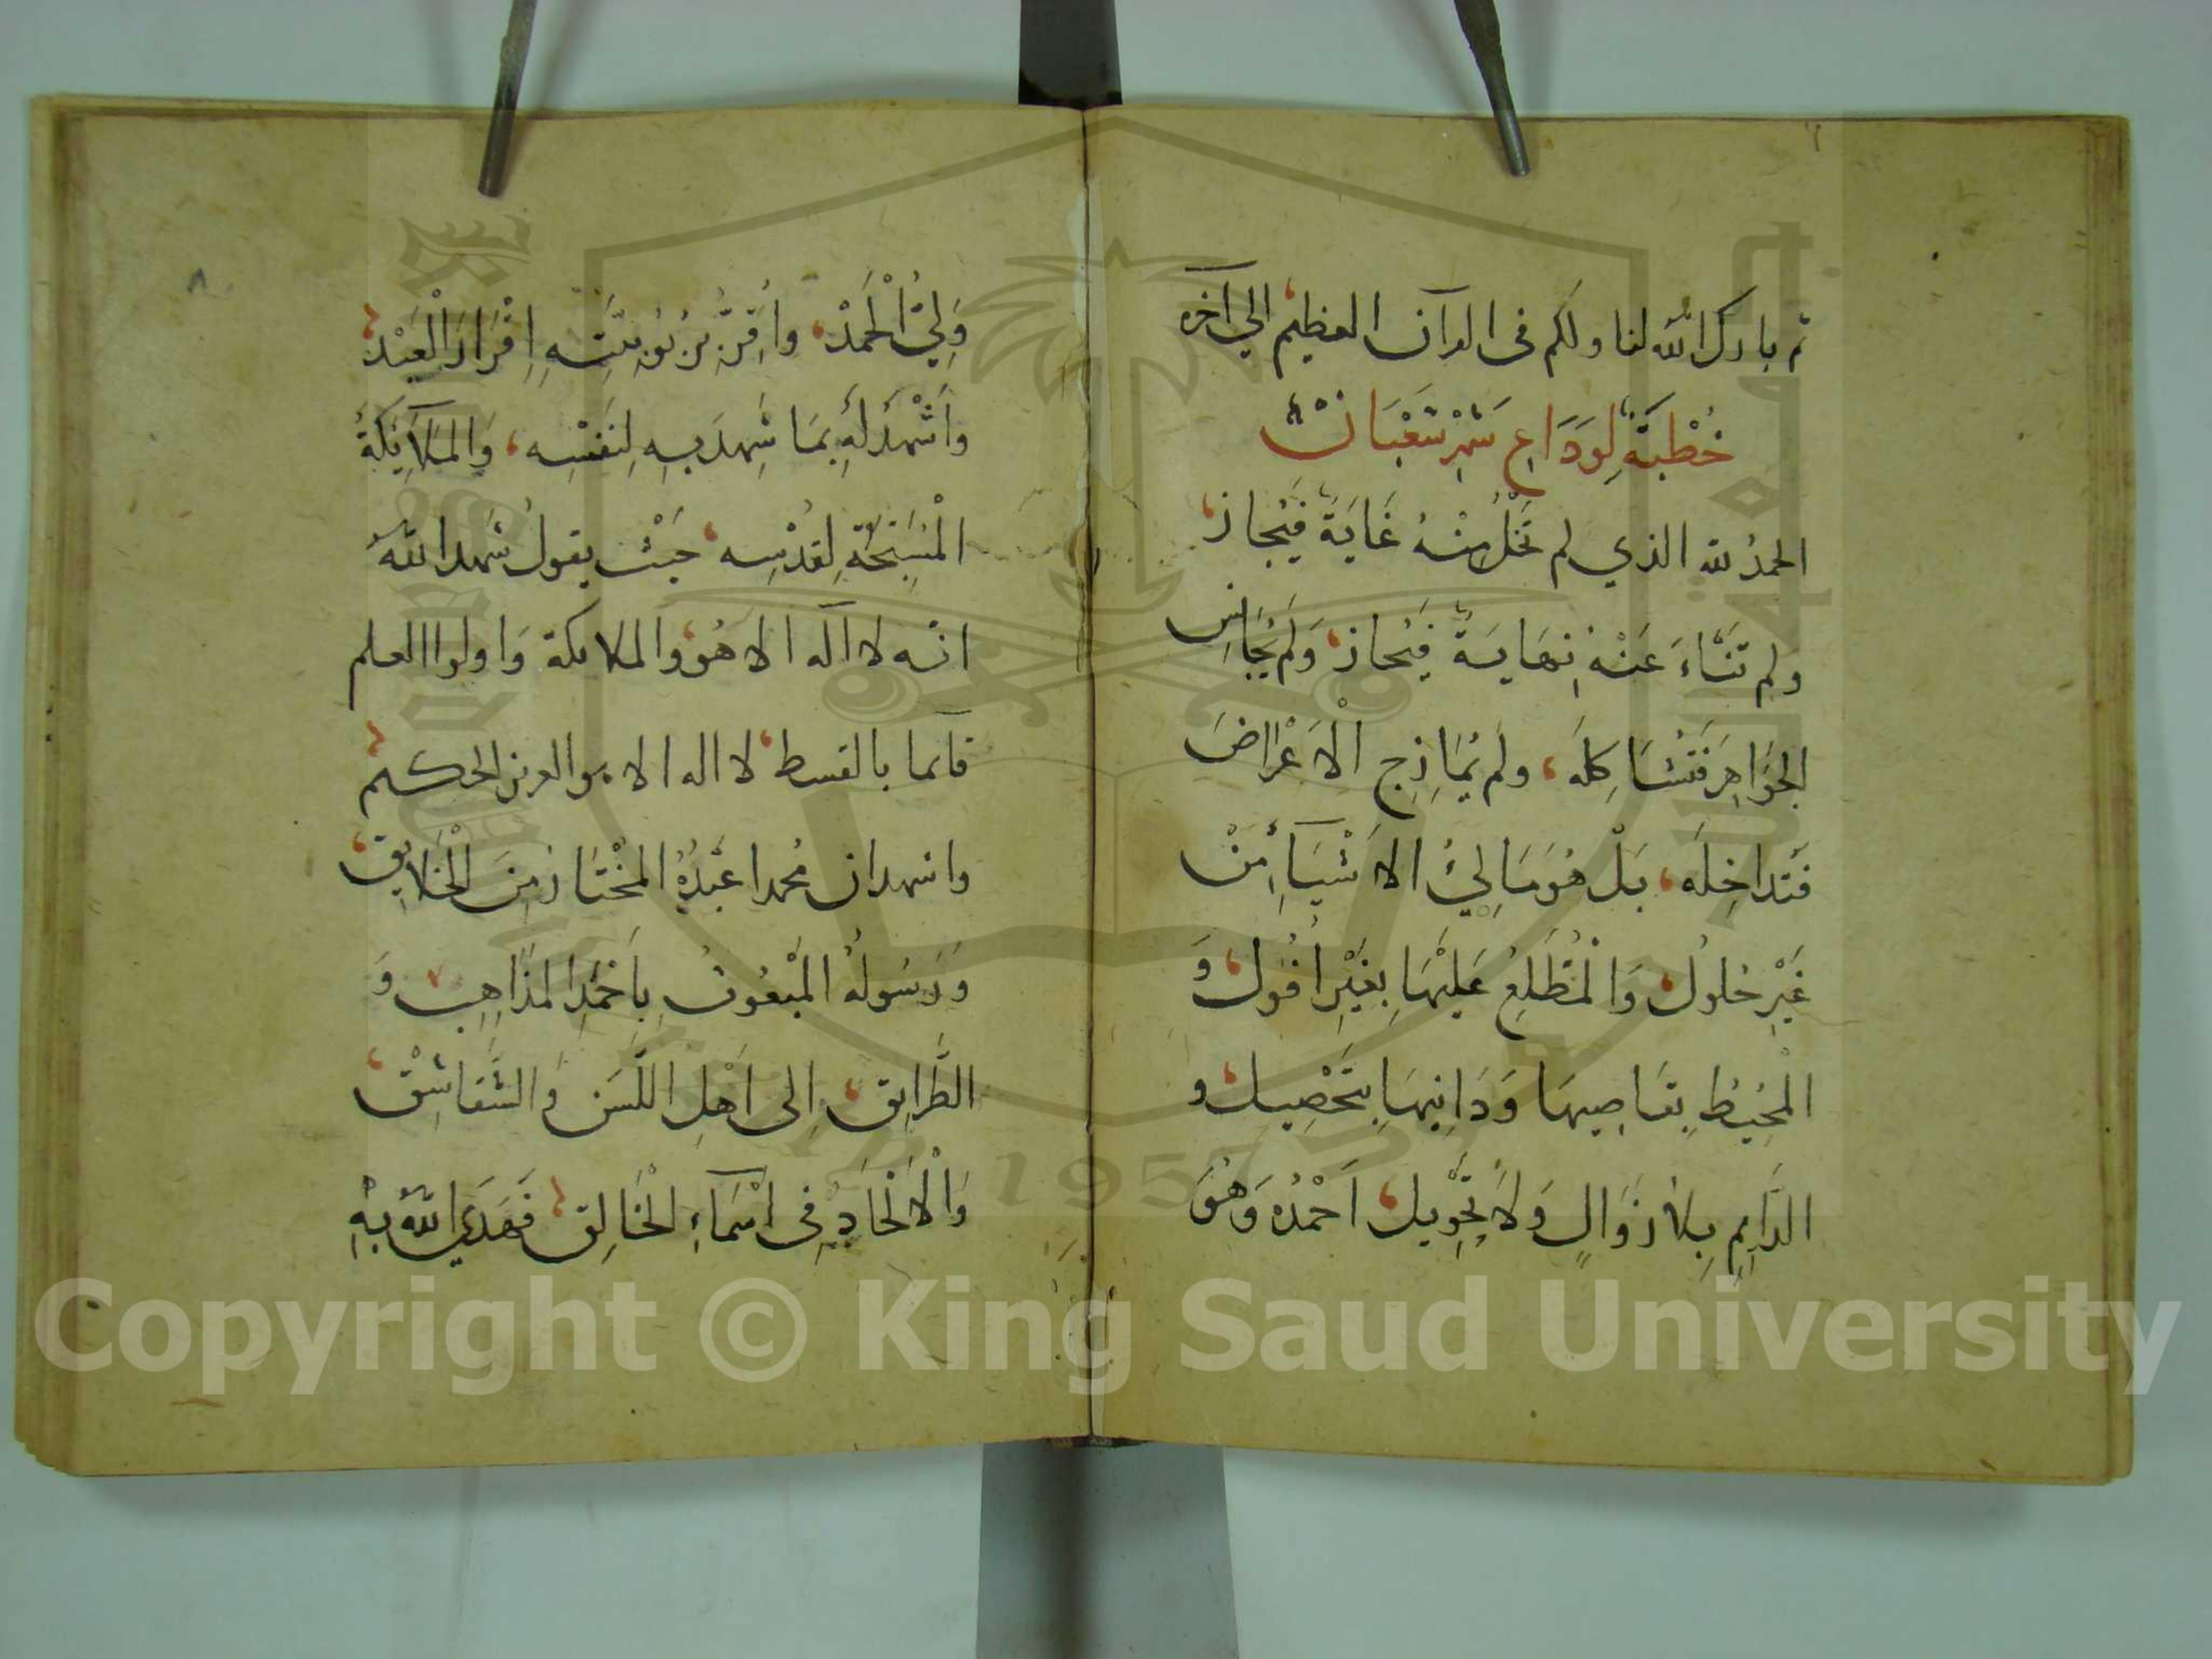 ثم بارك الله لنا ولكم فى القرآن العظيم الي آخره
خُطْبَةٌ لِوَدَاعِ شَهْرِ شَعْبَانْ
الحمدُ لله الذي لم تَخْلُ مِنْهُ غَايَةٌ فَيُجاز
ولم تَنْاءَ عَنْهُ نِهَايَةٌ فَيُحاز وَلَم يُجَانِسِ
الجَوَاهِرَ فَتُشَاكِلَه ولم يُمَازِجِ الْاَعْرَاضَ
فَتداخِلَه بَلْ هُوَ مَالِئُ الاَشْيَآءِ مِنْ
غَيْرِ حُلولٍ وَالمُطَّلِعُ عَلَيْهَا بِغَيْرِ اُفُول وَ
المُحِيْطُ بِقَاصِيهَا وَدَانِيهَا بِتَحْصِيل و
الدَّايِمِ بِلاَ زَوَالٍ وَلاَ تَحْوِيل اَحْمَدُهُ وَهُوَ
٨
وَلِيُّ الْحَمْدْ وَاُقِرُّ بِرُبُوبِيَّتِهِ اِقْرَارَ الْعَبْدْ
وَاَشْهَدُ لَهُ بِمَا شَهِدَ بِهِ لِنَفْسِه وَالمَلآيِكَةُ
الْمُسَبِّحَةِ لِقُدْسِه حَيْث يقولُ شَهِدَ اللّهُ
انّه لا آله الا هُوَ والملايكة وَاولوا العلم
قآئما بالقسط لا اله الا هو العزيز الحكيم
واشهد ان محمدا عَبْدُهُ المُخْتَارُ مِنَ الْخَلَايِق
وَرَسُولُهُ المَبْعُوثُ بِاَحْمَدِ المَذَاهِبِ وَ
الطَّرَايِق اِلى اَهْلِ اللَّسَنِ وَالشَّقَاشِقْ
وَالْاِلْحَادِ فِى اَسْمَاءِ الْخَالِق فَهَدَي اللّهُ بِهِ
Copyright © King Saud University
1957